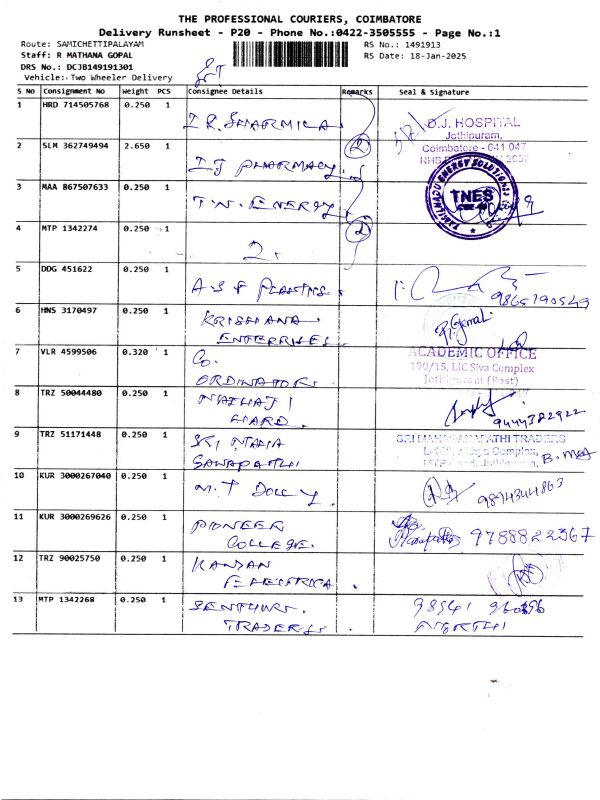 THE PROFESSIONAL COURIERS, COIMBATORE
Delivery Runsheet - P20 - Phone No.:0422-3505555 - Page No.:1
Route: SAMICHETTIPALAYAM
RS No.: 1491913
Staff: R MATHANA GOPAL
RS Date: 18-Jan-2025
DRS No.: DCJB149191301
Vehicle:- Two Wheeler Delivery
S No Consignment No Weight PCS Consignee Details Remarks Seal & Signature
1 HRD 714505768 0.250 1 I R. SHARMILA
D.J. HOSPITAL
Jothipuram,
Coimbatore - 641 047
2 SLM 362749494 2.650 1 IJ PHARMACY 2
3 MAA 867507633 0.250 1 T.N. ENERGY
TAMILNADU ENERGY SOLUTIONS
TNES
4 MTP 1342274 0.250 1 2. 2
5 DDG 451622 0.250 1 A S F PLANTINS. 9865790549
6 HNS 3170497 0.250 1 KRISHANA
ENTERPRISES.
7 VLR 4599506 0.320 1 CO.
ORDINATOR.
ACADEMIC OFFICE
190/15, LIC Siva Complex
Jothipuram (Post)
8 TRZ 50044480 0.250 1
HARD. 9444382922
9 TRZ 51171448 0.250 1 SRI MAHA
GANAPATHI
SRI MAHAGANAPATHI TRADERS
10 KUR 3000267040 0.250 1 M. T DOLLY 9894344863
11 KUR 3000269626 0.250 1 PIONEER
COLLEGE. 9788822367
12 TRZ 90025750 0.250 1 KANDAN
ELECTRICA.
13 MTP 1342268 0.250 1 SENTHURI. 98541
TRADERS.